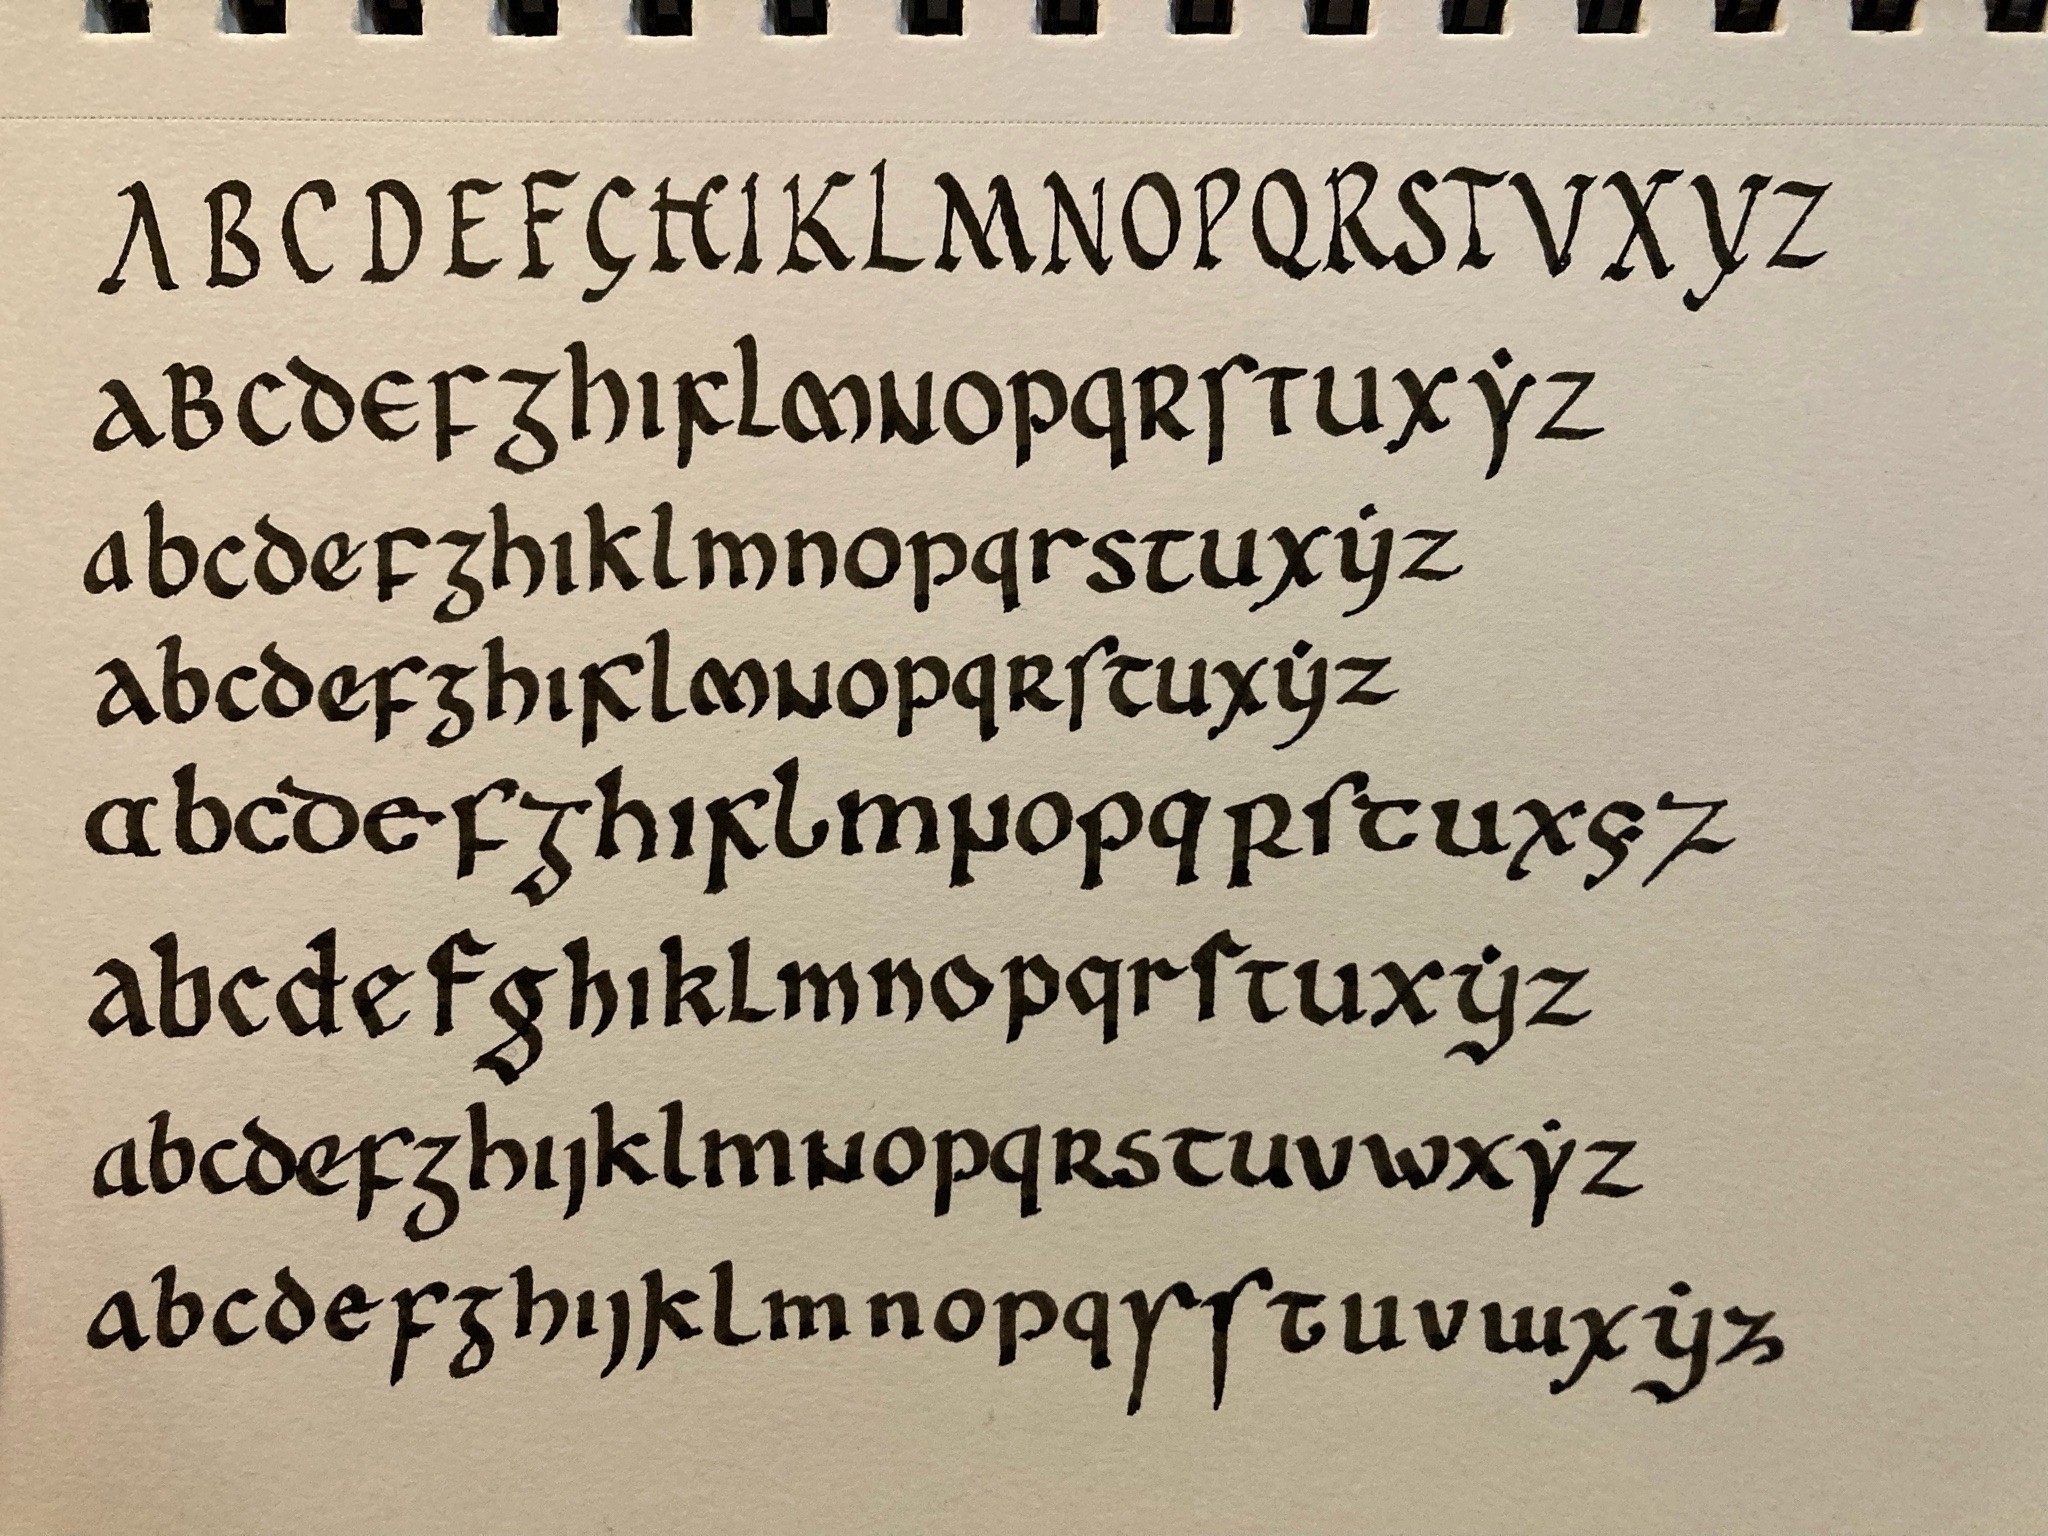 ABCDEFGHIKLMNOPQRSTVXYZ
aBcdefghıklmNopqRſtuxẏz
abcdefghıklmnopqrstuxẏz
abcdefghıklmNopqRſtuxẏz
abcdefghıklmNopqRſtuxyz
abcdefghıklmnopqrſtuxẏz
abcdefghıȷklmNopqRstuvwxẏz
abcdefghıȷklmnopqrſtuvwxẏz